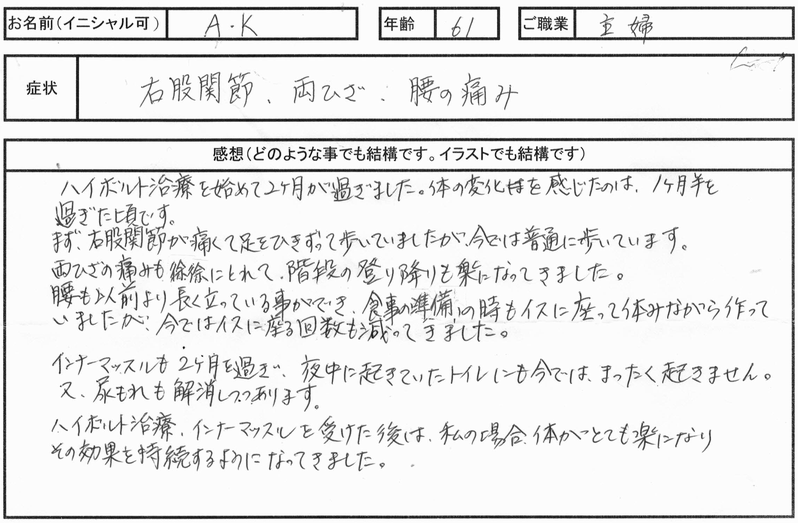 お名前(イニシャル可) A・K 年齢 61 ご職業 主婦
症状 右股関節、両ひざ、腰の痛み
感想(どのような事でも結構です。イラストでも結構です)
ハイボルト治療を始めて2ヶ月が過ぎました。体の変化を感じたのは、1ヶ月半を
過ぎた頃です。
まず、右股関節が痛くて足をひきずって歩いていましたが、今では普通に歩いています。
両ひざの痛みも徐徐にとれて、階段の登り降りも楽になってきました。
腰も以前より長く立っている事ができ、食事の準備の時もイスに座って休みながら作って
いましたが、今ではイスに座る回数も減ってきました。
インナーマッスルも2ヶ月を過ぎ、夜中に起きていたトイレにも今では、まったく起きません。
又、尿もれも解消しつつあります。
ハイボルト治療、インナーマッスルを受けた後は、私の場合、体がとても楽になり
その効果を持続するようになってきました。